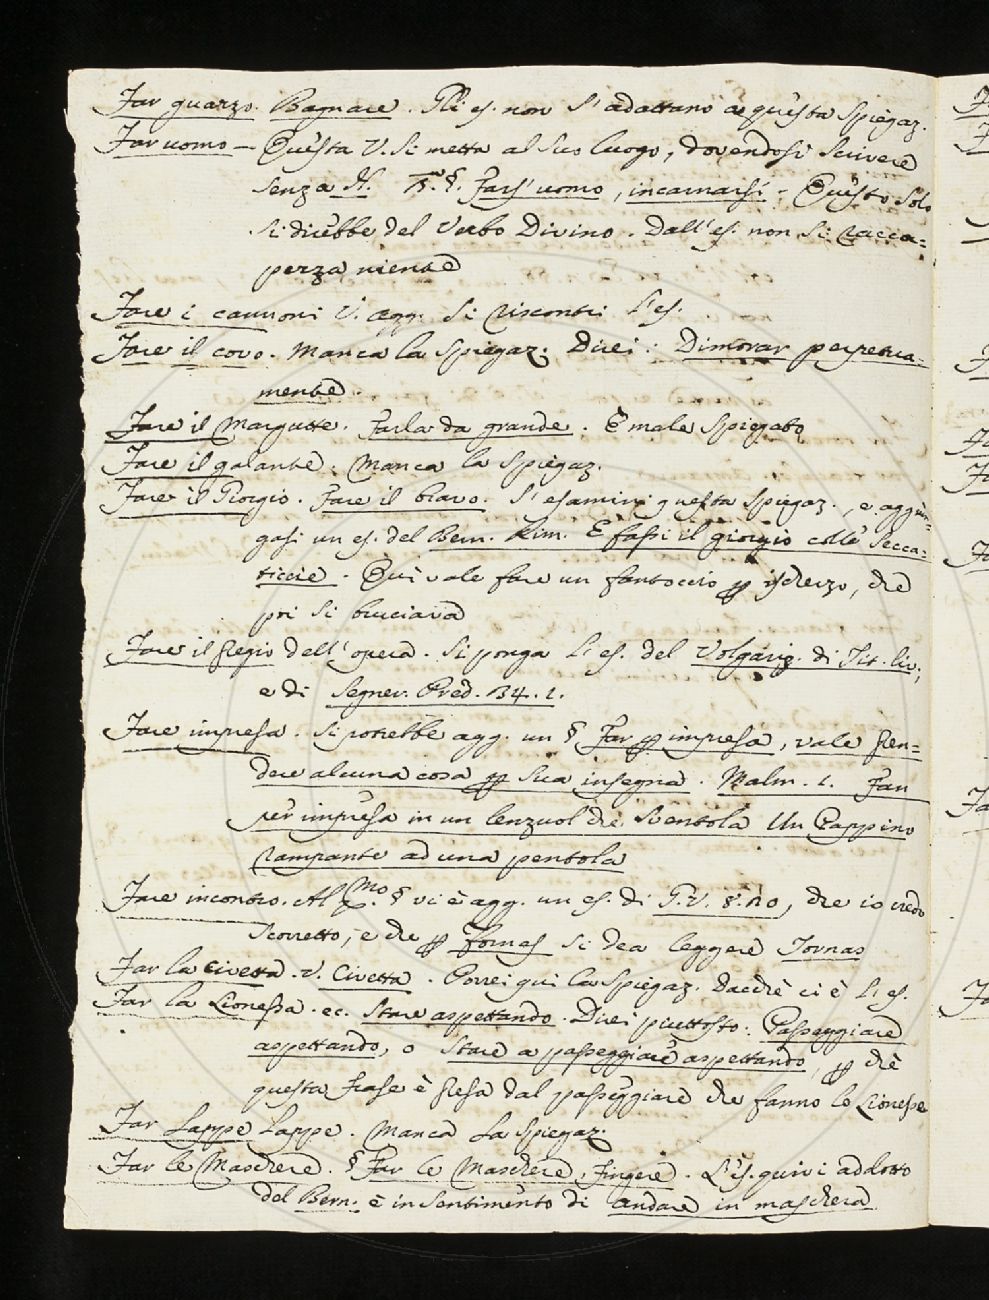 Far guazzo. Bagnare. Gli es. non s'adattano a questa Spiegaz.
Far uomo — Questa V. si metta al suo luogo, dovendosi scrivere
senza H. §. Farsi uomo, incarnarsi. Questo solo
si direbbe del Verbo Divino. Dall'es. non si racca=
pezza niente
Fare i cannoni V. agg. si riscontri l'es.
Fare il covo. Manca la Spiegaz. Direi: Dimorar perpetua=
mente.
Fare il Margutte. Farla da grande. È male spiegato
Fare il galante. Manca la Spiegaz.
Fare il Giorgio. Fare il bravo. S'esamini questa Spiegaz., e aggiun=
gasi un es. del Bern. Rim. E fassi il giorgio colle secca=
ticcie. Qui vale fare un fantoccio p ischerzo, che
poi si bruciava
Fare il Regio dell'opera. Si ponga l'es. del Volgariz. di Tit. Liv.,
e di Segner. Pred. 34. 1.
Fare impresa. Si potrebbe agg. un § Far p impresa, vale Pren=
dere alcuna cosa p sua insegna. Malm. 1. Fan
per impresa in un lenzuol che sventola Un Pappino
rampante ad una pentola
Fare incontro. Al mo. § vi è agg. un es. di G. V. 8. , che io credo
scorretto, e che p fornas si dea leggere Tornas
Far la Civetta. V. Civetta. Porrei qui la Spiegaz. dacchè ci è l'es.
Far la Lionessa. ec. Stare aspettando. Direi piuttosto: Passeggiare
aspettando, o stare a passeggiare aspettando, p chè
questa frase è presa dal passeggiare che fanno le Lionesse
Far Lappe Lappe. Manca la Spiegaz.
Far le Maschere. § Far le Maschere, fingere. L'es. quivi addotto
del Bern. è in sentimento di andare in maschera